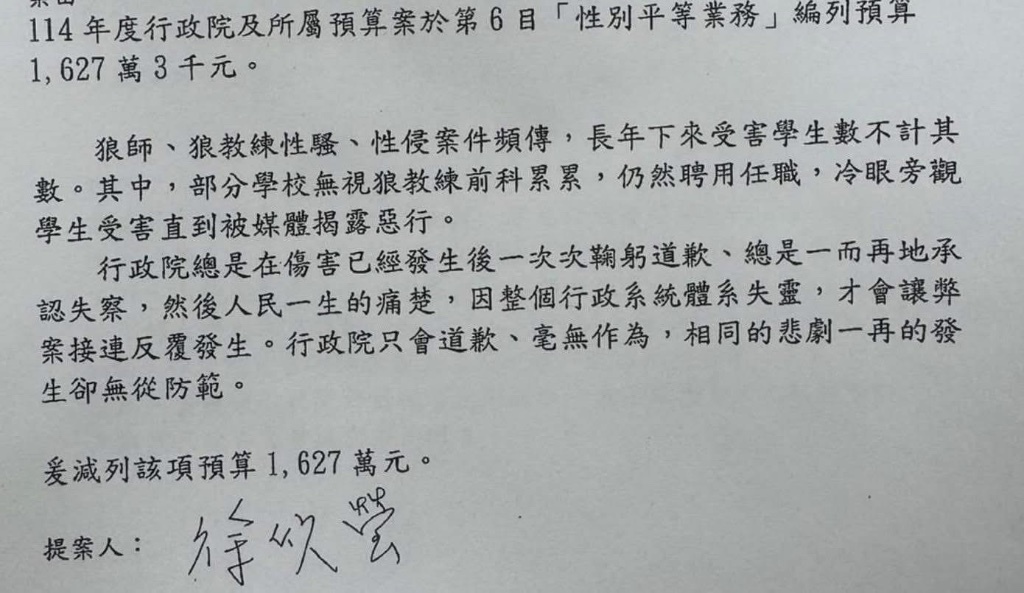 案由
114 年度行政院及所屬預算案於第 6 目「性別平等業務」編列預算
1,627 萬 3 千元。
狼師、狼教練性騷、性侵案件頻傳，長年下來受害學生數不計其
數。其中，部分學校無視狼教練前科累累，仍然聘用任職，冷眼旁觀
學生受害直到被媒體揭露惡行。
行政院總是在傷害已經發生後一次次鞠躬道歉、總是一而再地承
認失察，然後人民一生的痛楚，因整個行政系統體系失靈，才會讓弊
案接連反覆發生。行政院只會道歉、毫無作為，相同的悲劇一再的發
生卻無從防範。
爰減列該項預算 1,627 萬元。
提案人： 徐欣瑩